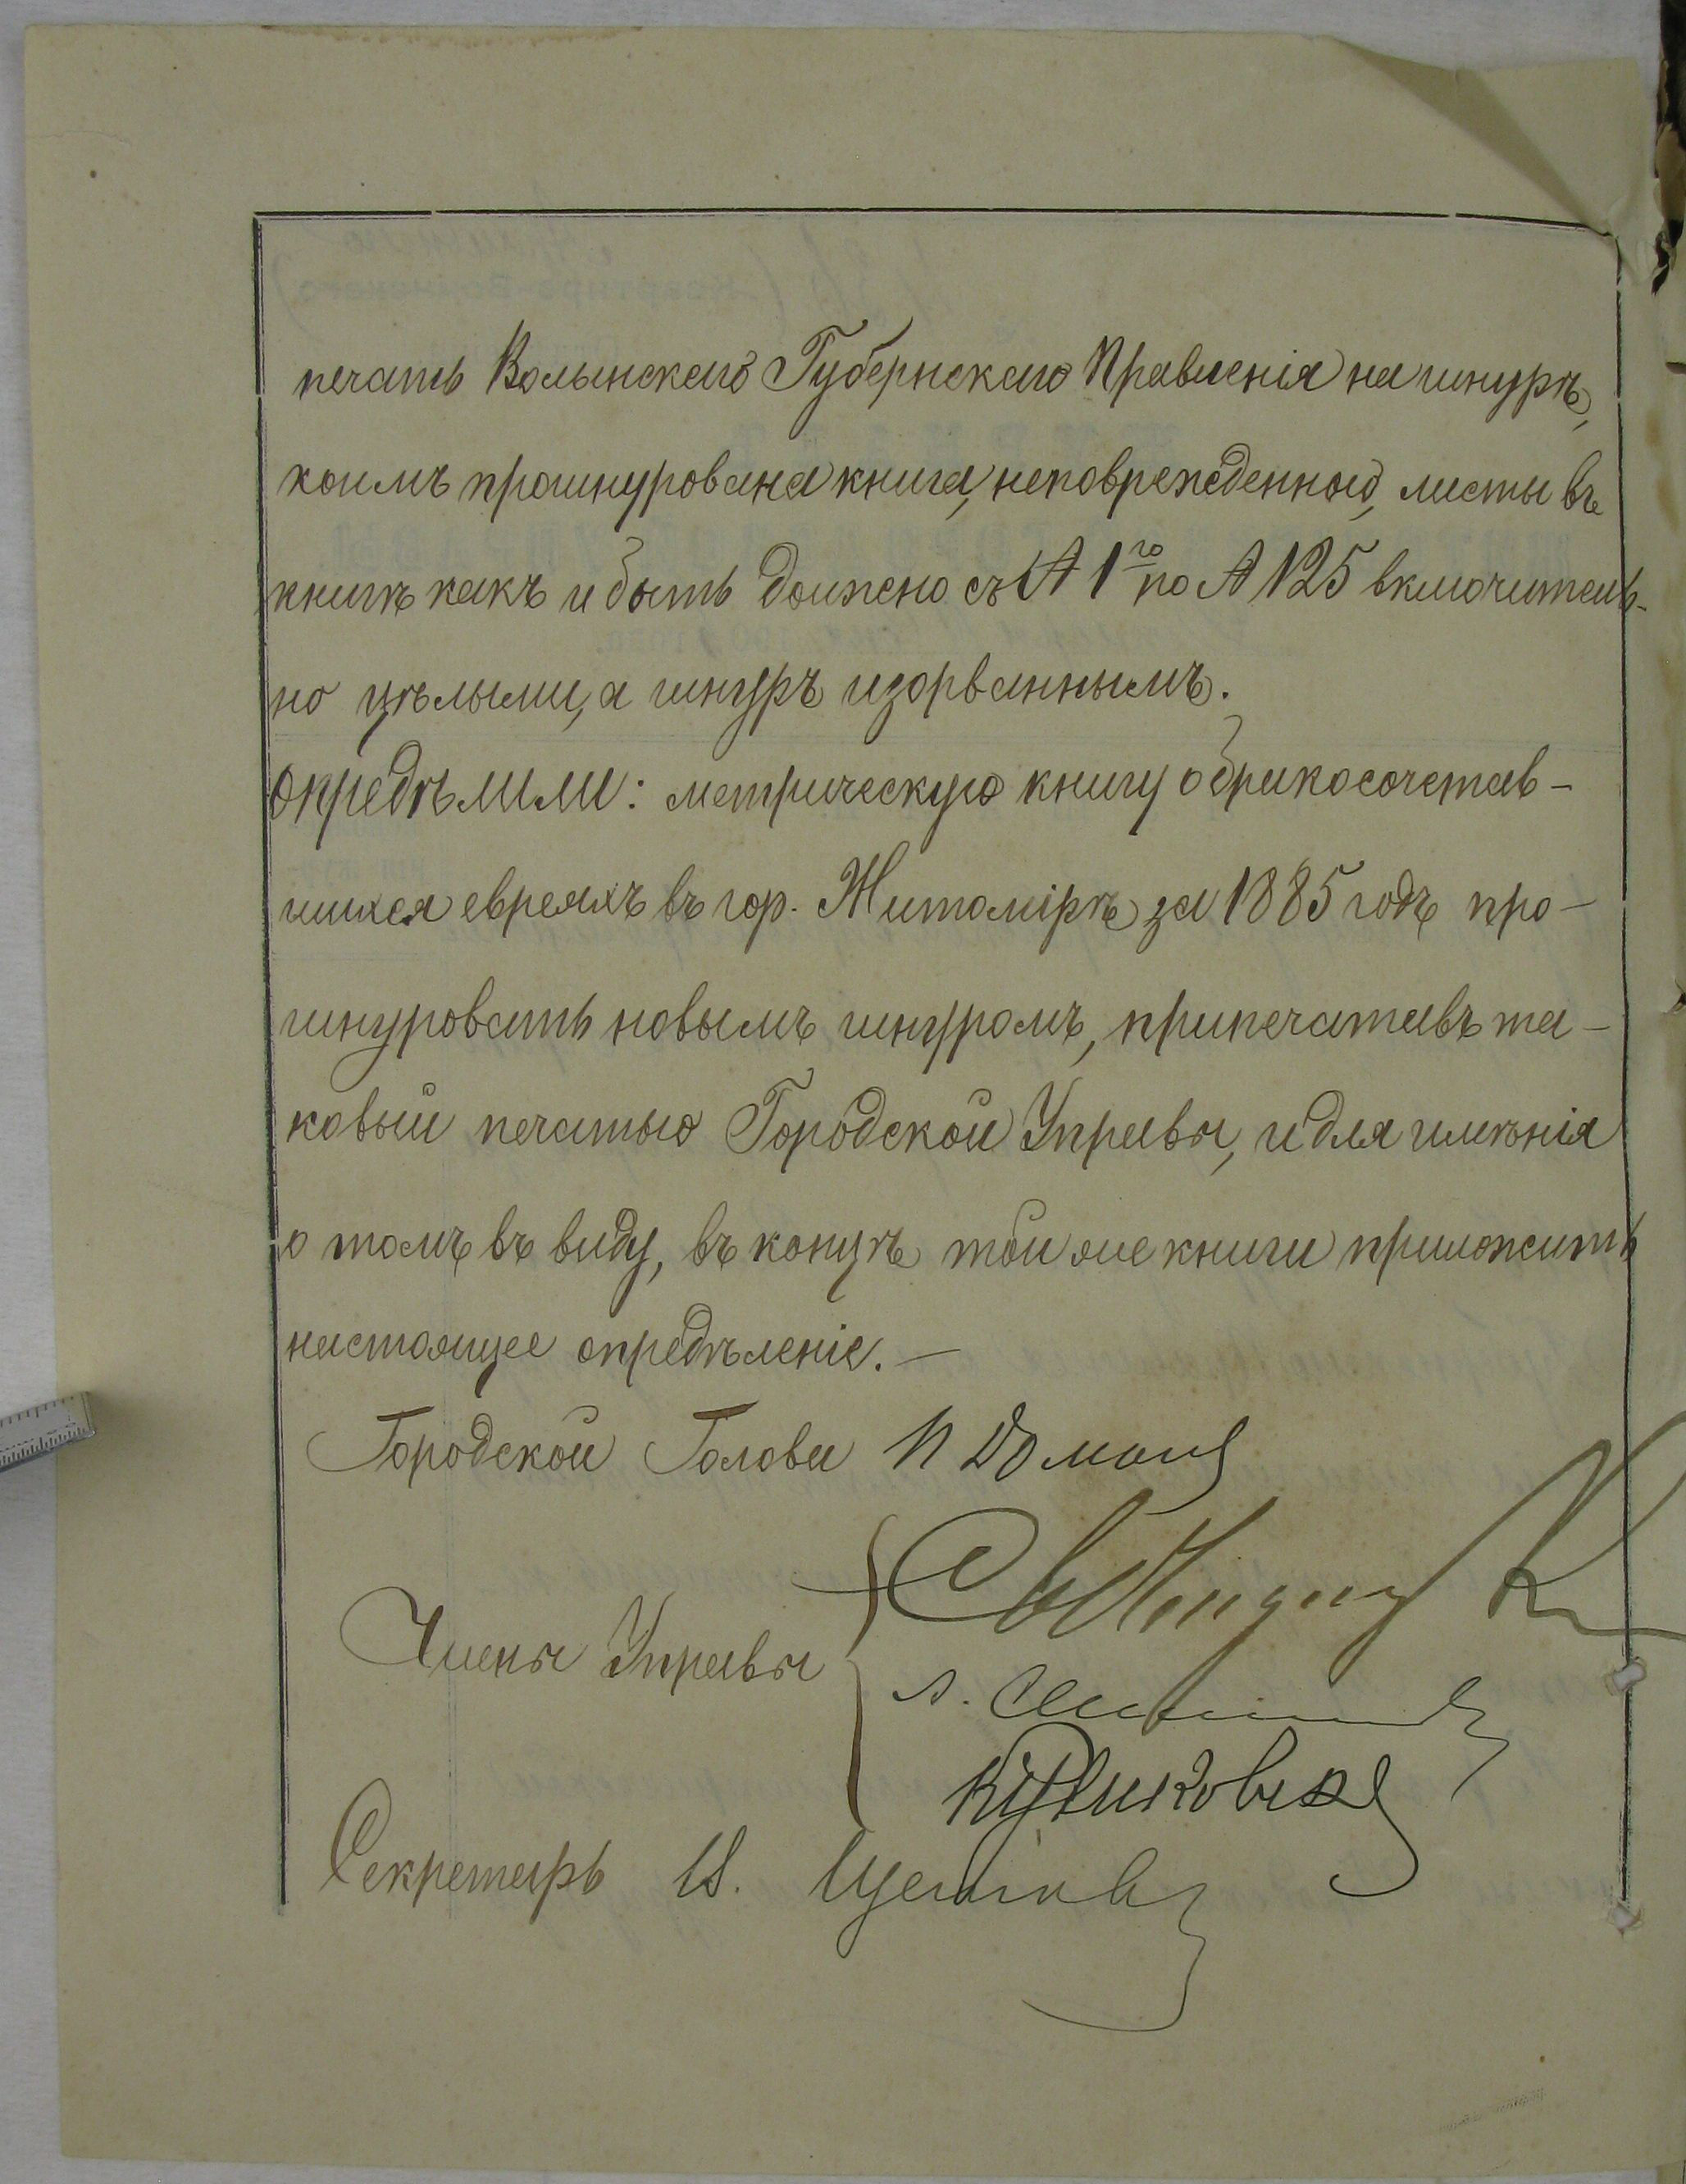 печать Волынскаго Губернскаго Правленія на шнурѣ,
коимъ прошнурована книга, неповрежденною, листы въ
книгѣ какъ и быть должно съ № 1го по № 125 включитель-
но цѣлыми, а шнуръ изорваннымъ.
опредѣлили: метрическую книгу о бракосочетав-
шихся евреяхъ въ гор. Житомірѣ за 1885 годъ про-
шнуровать новымъ шнуромъ, припечатавъ та-
ковый печатью Городской Управы, и для имѣнія
о томъ въ виду, въ концѣ той же книги приложить
настоящее опредѣленіе. —
Городской Голова
Члены Управы
Секретарь